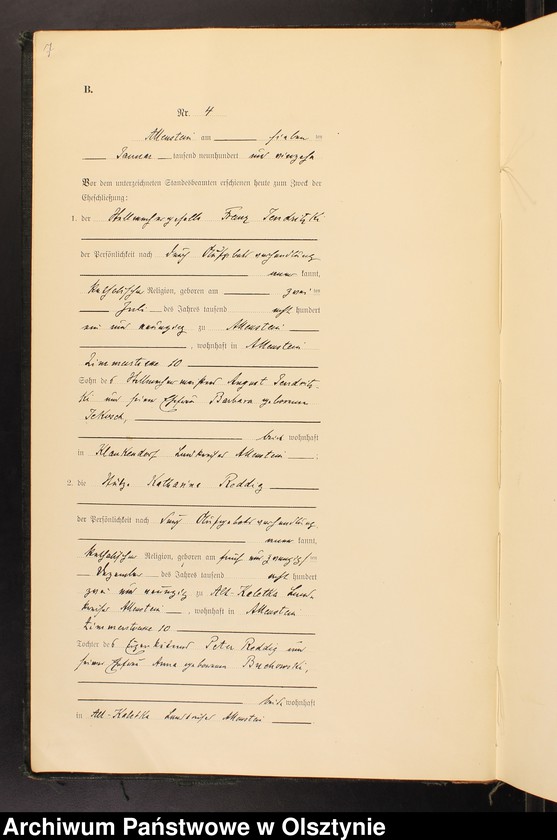 7
B.
Nr. 4
Allenstein am sieben ten
Januar tausend neunhundert und vierzehn
Vor dem unterzeichneten Standesbeamten erschienen heute zum Zweck der
Eheschließung:
1. der Stellmachergeselle Franz Jendritzki
der Persönlichkeit nach durch Aufgebotsverhandlung
aner kannt,
katholischer Religion, geboren am zwei ten
Juli des Jahres tausend acht hundert
ein und neunzig zu Allenstein
, wohnhaft in Allenstein
Zimmerstrasse 10
Sohn des Stellmachermeisters August Jendritz-
ki und seiner Ehefrau Barbara geborenen
beide wohnhaft
in Klaukendorf Landkreises Allenstein
2. die Katharina Roddig
der Persönlichkeit nach durch Aufgebotsverhandlung
aner kannt,
katholischer Religion, geboren am fünf und zwanzig sten
Dezember des Jahres tausend acht hundert
zwei und neunzig zu Alt-Kaletka Land-
kreises Allenstein , wohnhaft in Allenstein
Zimmerstrasse 10
Tochter des Eigenkätners Peter Roddig und
seiner Ehefrau Anna geborenen Buchowski,
beide wohnhaft
in Alt-Kaletka Landkreises Allenstein
Archiwum Państwowe w Olsztynie